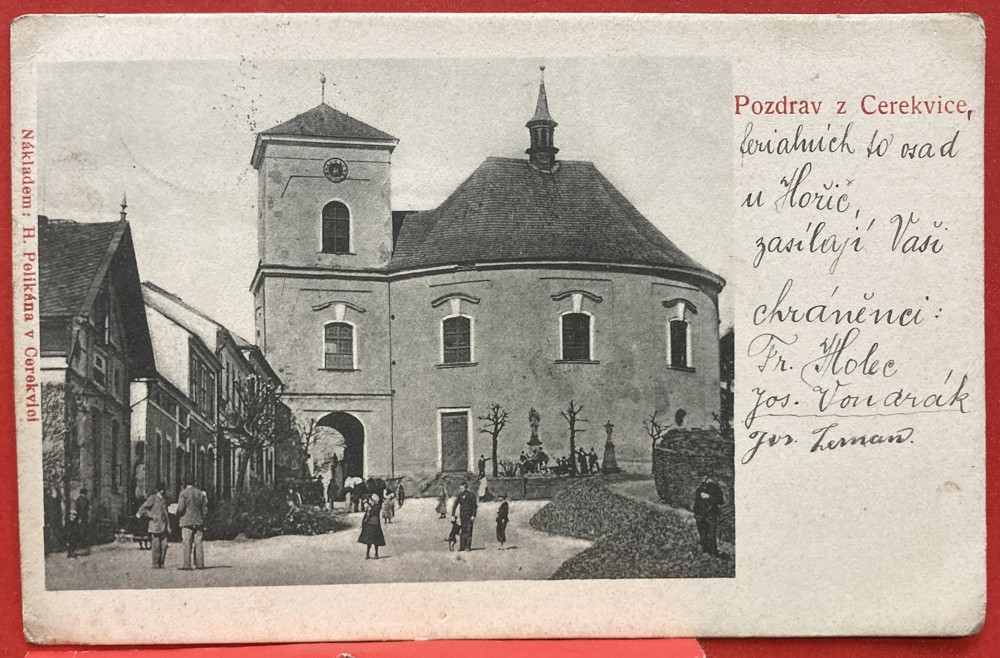 Pozdrav z Cerekvice,
ferialních to osad
u Hořic,
zasílají Vaši
chráněnci:
Fr. Holec
Jos. Vondrák
Jos. Zeman.
Nákladem: H. Polikána v Cerekvici